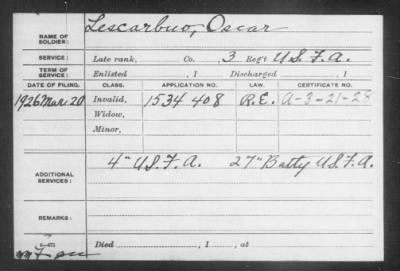 Lescarbuo, Oscar
NAME OF SOLDIER:
SERVICE: Late rank, Co. 3 Reg't U.S.F.A.
TERM OF SERVICE: Enlisted , 1 Discharged , 1
DATE OF FILING. CLASS. APPLICATION NO. LAW. CERTIFICATE NO.
1926 Mar. 20 Invalid, 1534 408 R.E. A-3-21-28
Widow,
Minor,
4" U.S.F.A. 27" Batty U.S.F.A.
ADDITIONAL SERVICES:
REMARKS:
Died , 1 , at